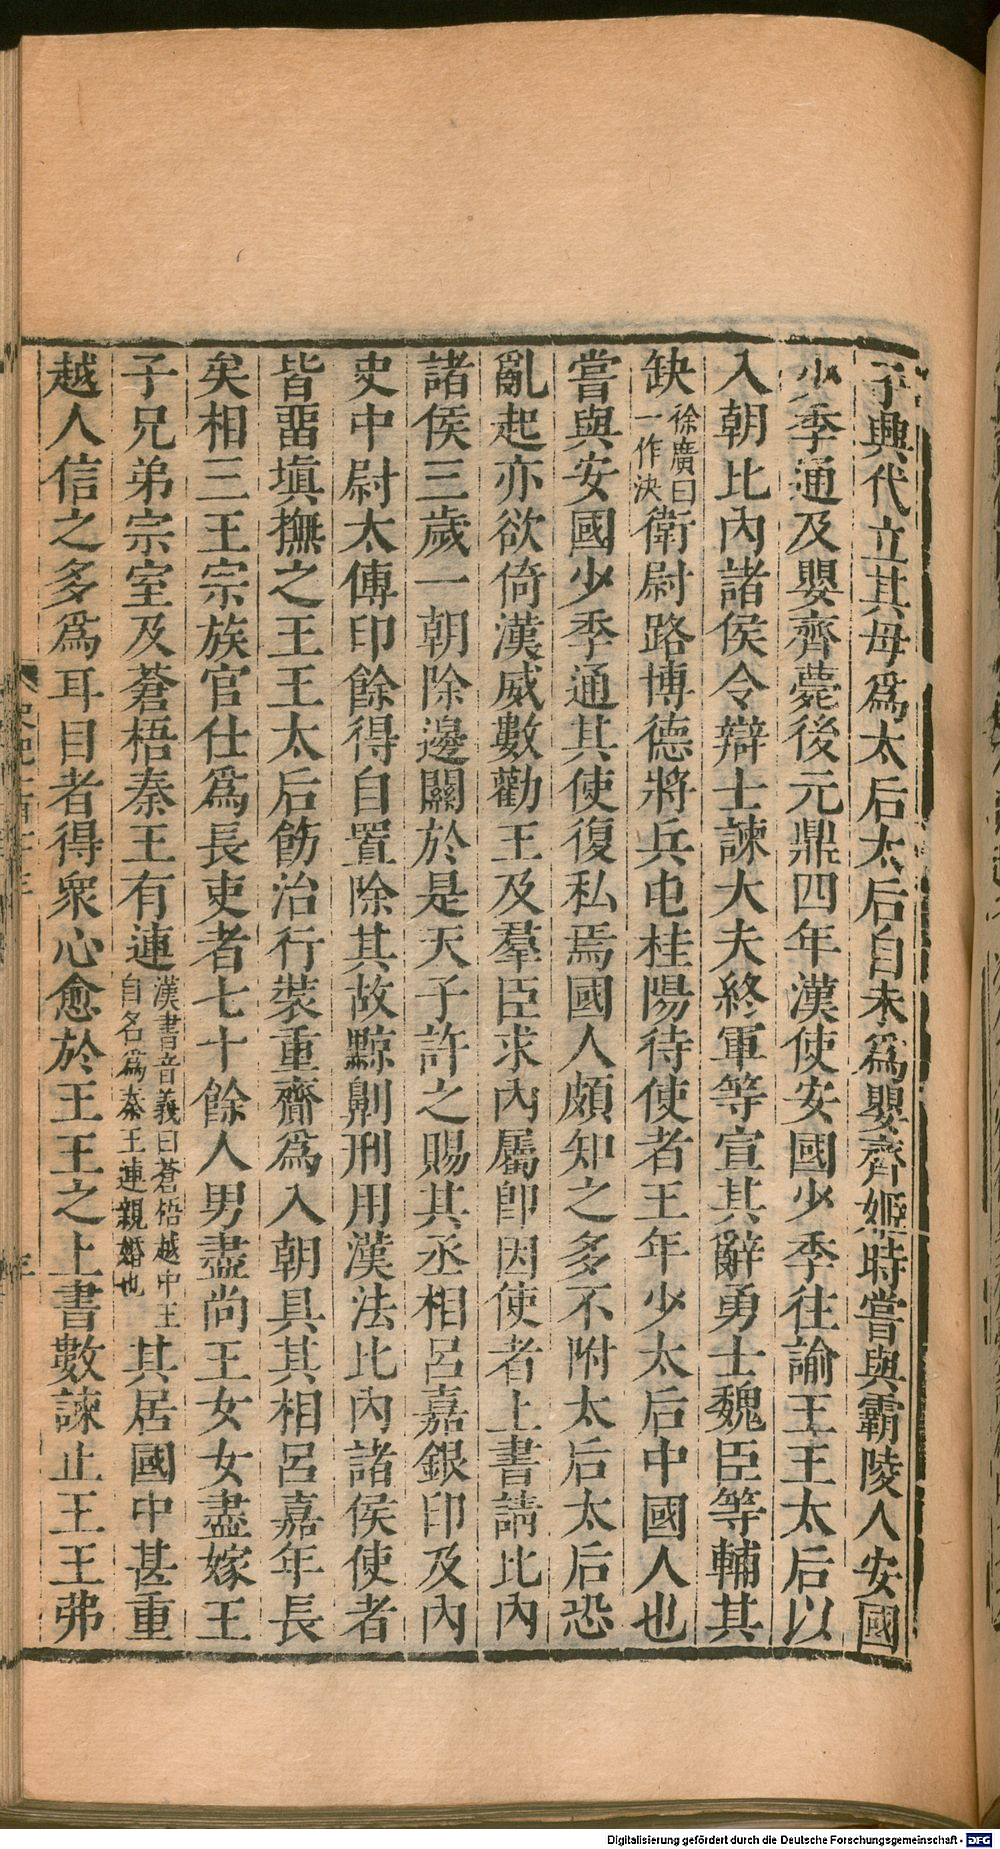 子興代立其母爲太后太后自未爲嬰齊姬時嘗與霸陵人安國
少季通及嬰齊薨後元鼎四年漢使安國少季往諭王王太后以
入朝比內諸侯令辯士諫大夫終軍等宣其辭勇士魏臣等輔其
缺徐廣曰一作決衛尉路博德將兵屯桂陽待使者王年少太后中國人也
嘗與安國少季通其使復私焉國人頗知之多不附太后太后恐
亂起亦欲倚漢威數勸王及羣臣求內屬卽因使者上書請比內
諸侯三歲一朝除邊關於是天子許之賜其丞相呂嘉銀印及內
史中尉太傅印餘得自置除其故黥劓刑用漢法比內諸侯使者
皆畱塡撫之王王太后飭治行裝重齎爲入朝具其相呂嘉年長
矣相三王宗族官仕爲長吏者七十餘人男盡尚王女女盡嫁王
子兄弟宗室及蒼梧秦王有連漢書音義曰蒼梧越中王自名爲秦王連親婚也其居國中甚重
越人信之多爲耳目者得衆心愈於王王之上書數諫止王王弗
Digitalisierung gefördert durch die Deutsche Forschungsgemeinschaft - DFG